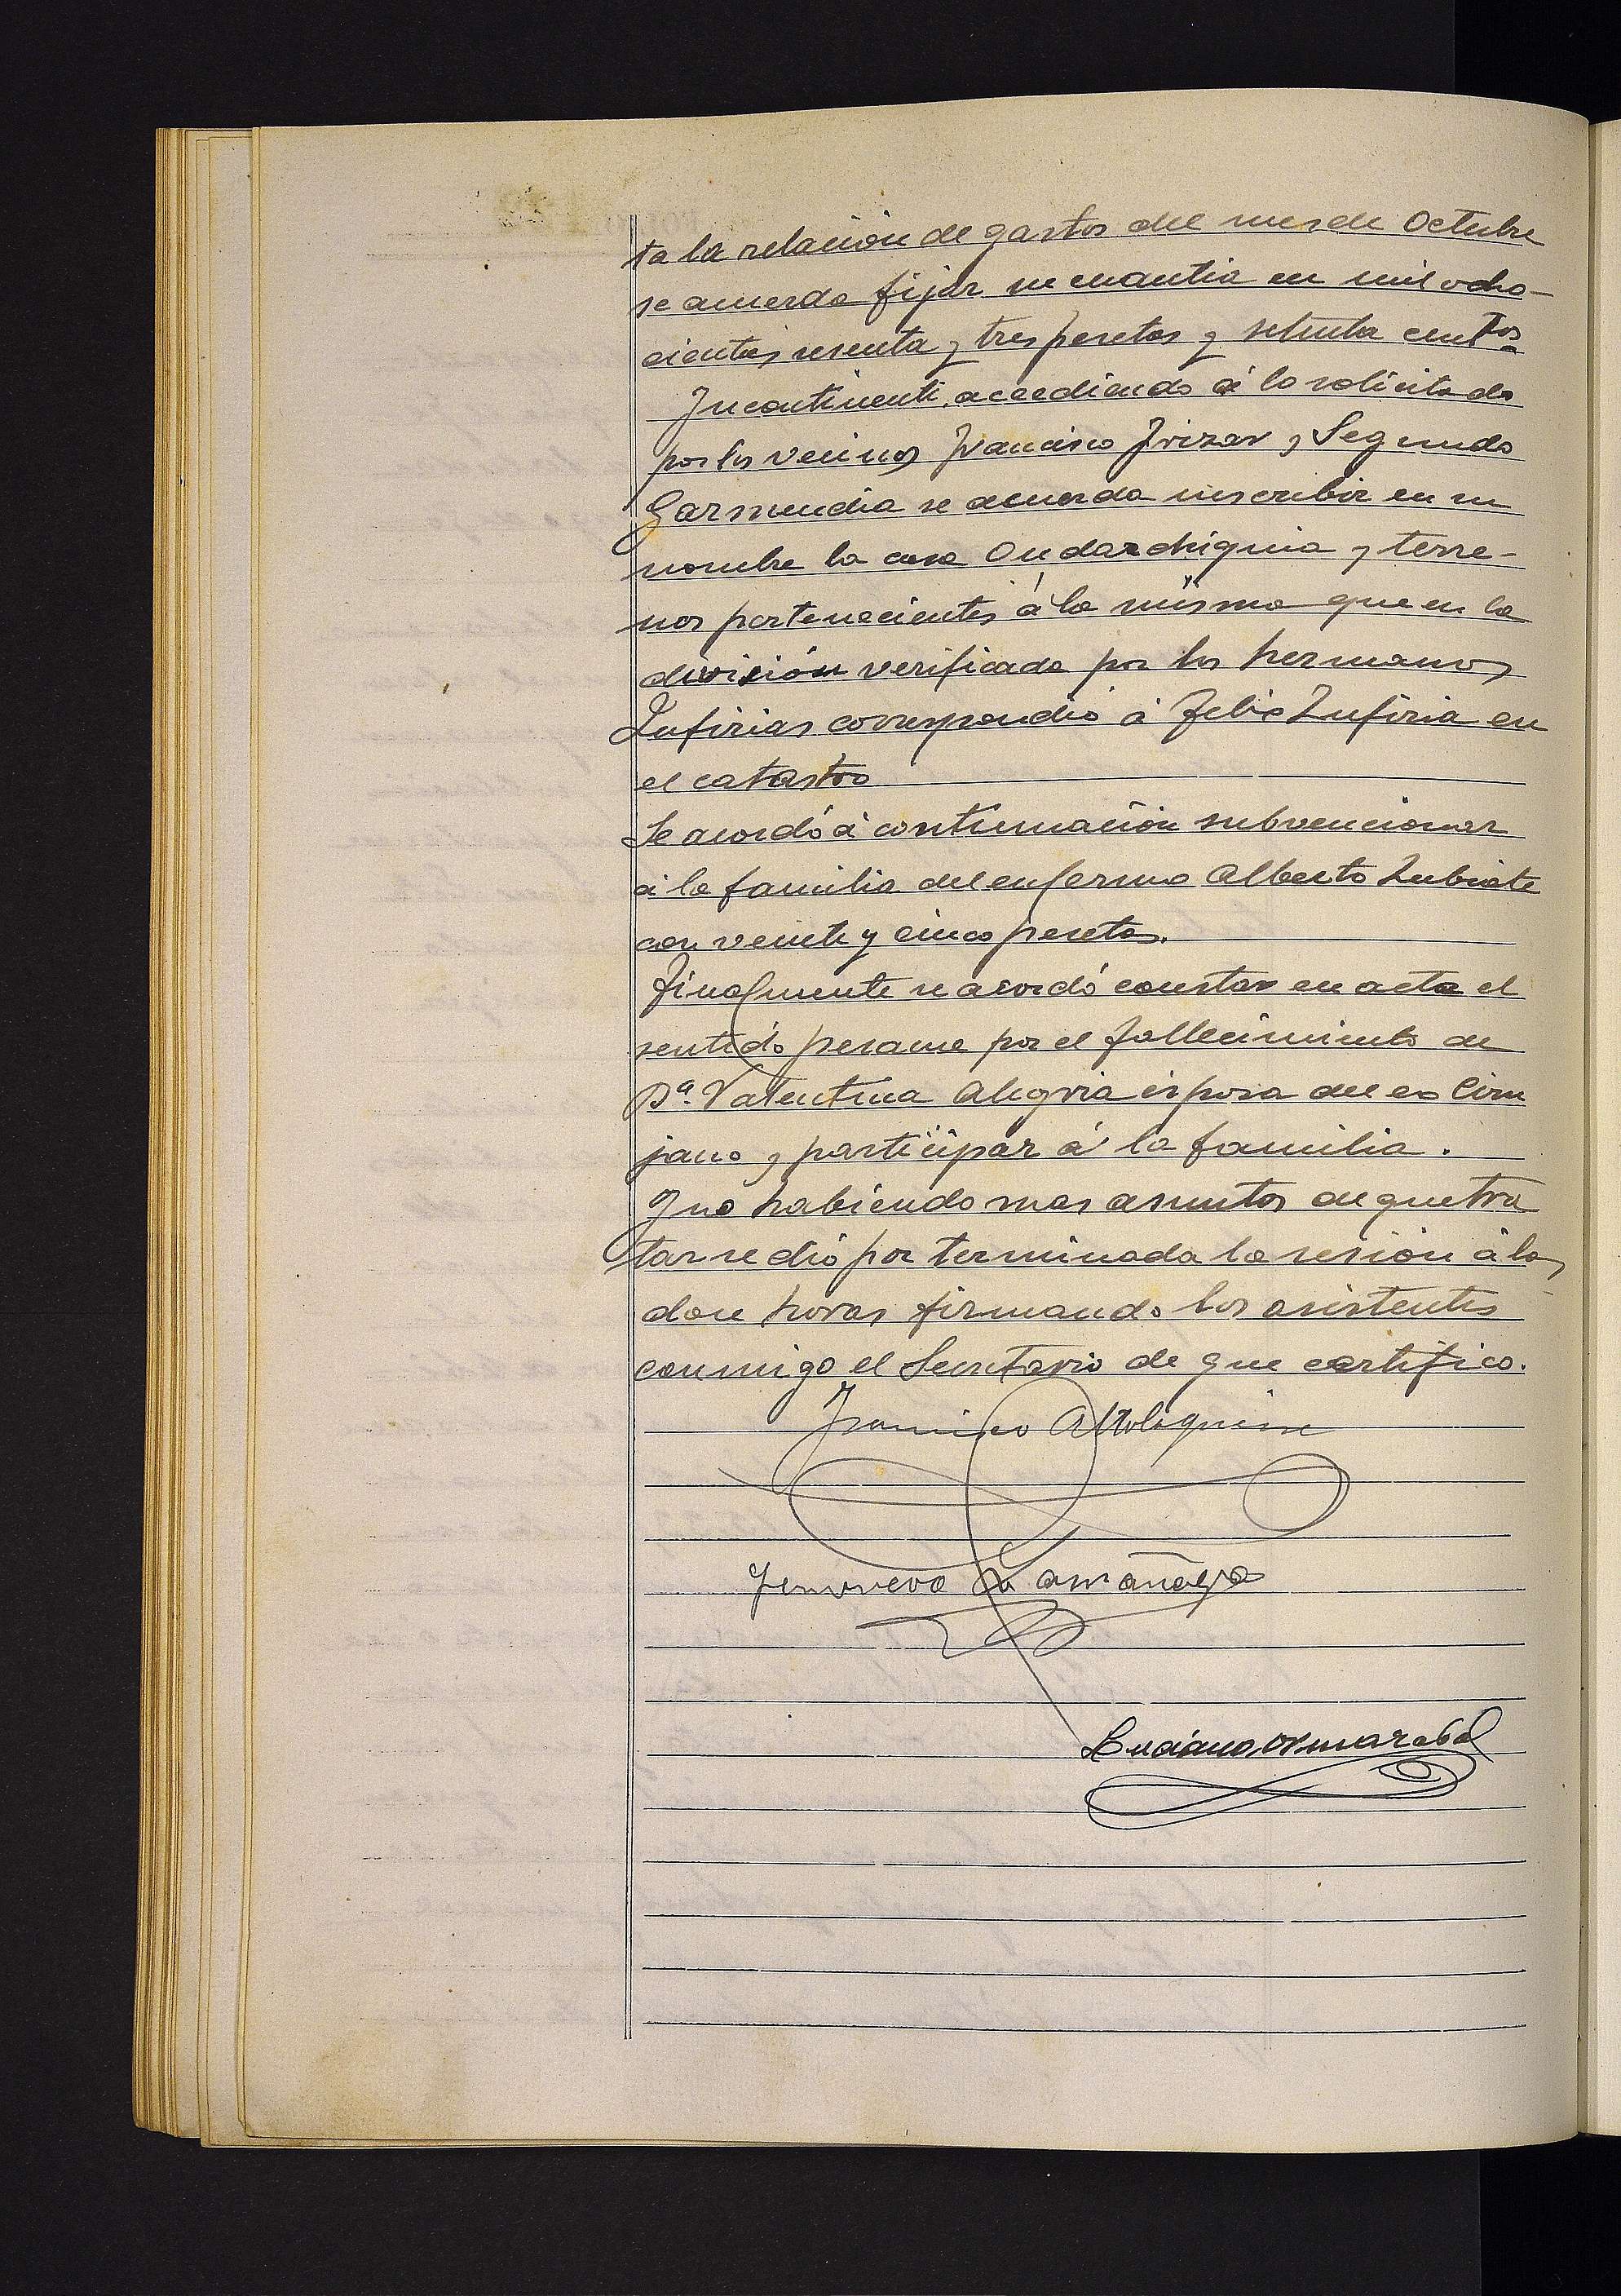 ta la relación de gastos del mes de Octubre
se acuerda fijar su cuantia en mil ocho-
cientas sesenta y tres pesetas y setenta centos
Incontinenti, accediendo á lo solicitado
por los vecinos Francisco Irizar y Segundo
Garmendia se acuerda inscribir en su
nombre la casa Ondarchiquia y terre-
nos pertenecientes á la misma que en la
división verificada por los hermanos
Zufirias correspondió á Felix Zufiria en
el catastro
Se acordó á continuación subvencionar
á la familia del enfermo Alberto Zubiate
con veinte y cinco pesetas.
Finalmente se acordó constar en acta el
sentido pesame por el fallecimiento de
Dª. Valentina Alegria esposa del ex Ciru
jano y participar á la familia.
Y no habiendo mas asuntos de que tra
tar se dió por terminada la sesión á las
doce horas firmando los asistentes
conmigo el Secretario de que certifico.
Francisco Altolaguirre
Genoveva Lamañaga
Luciano